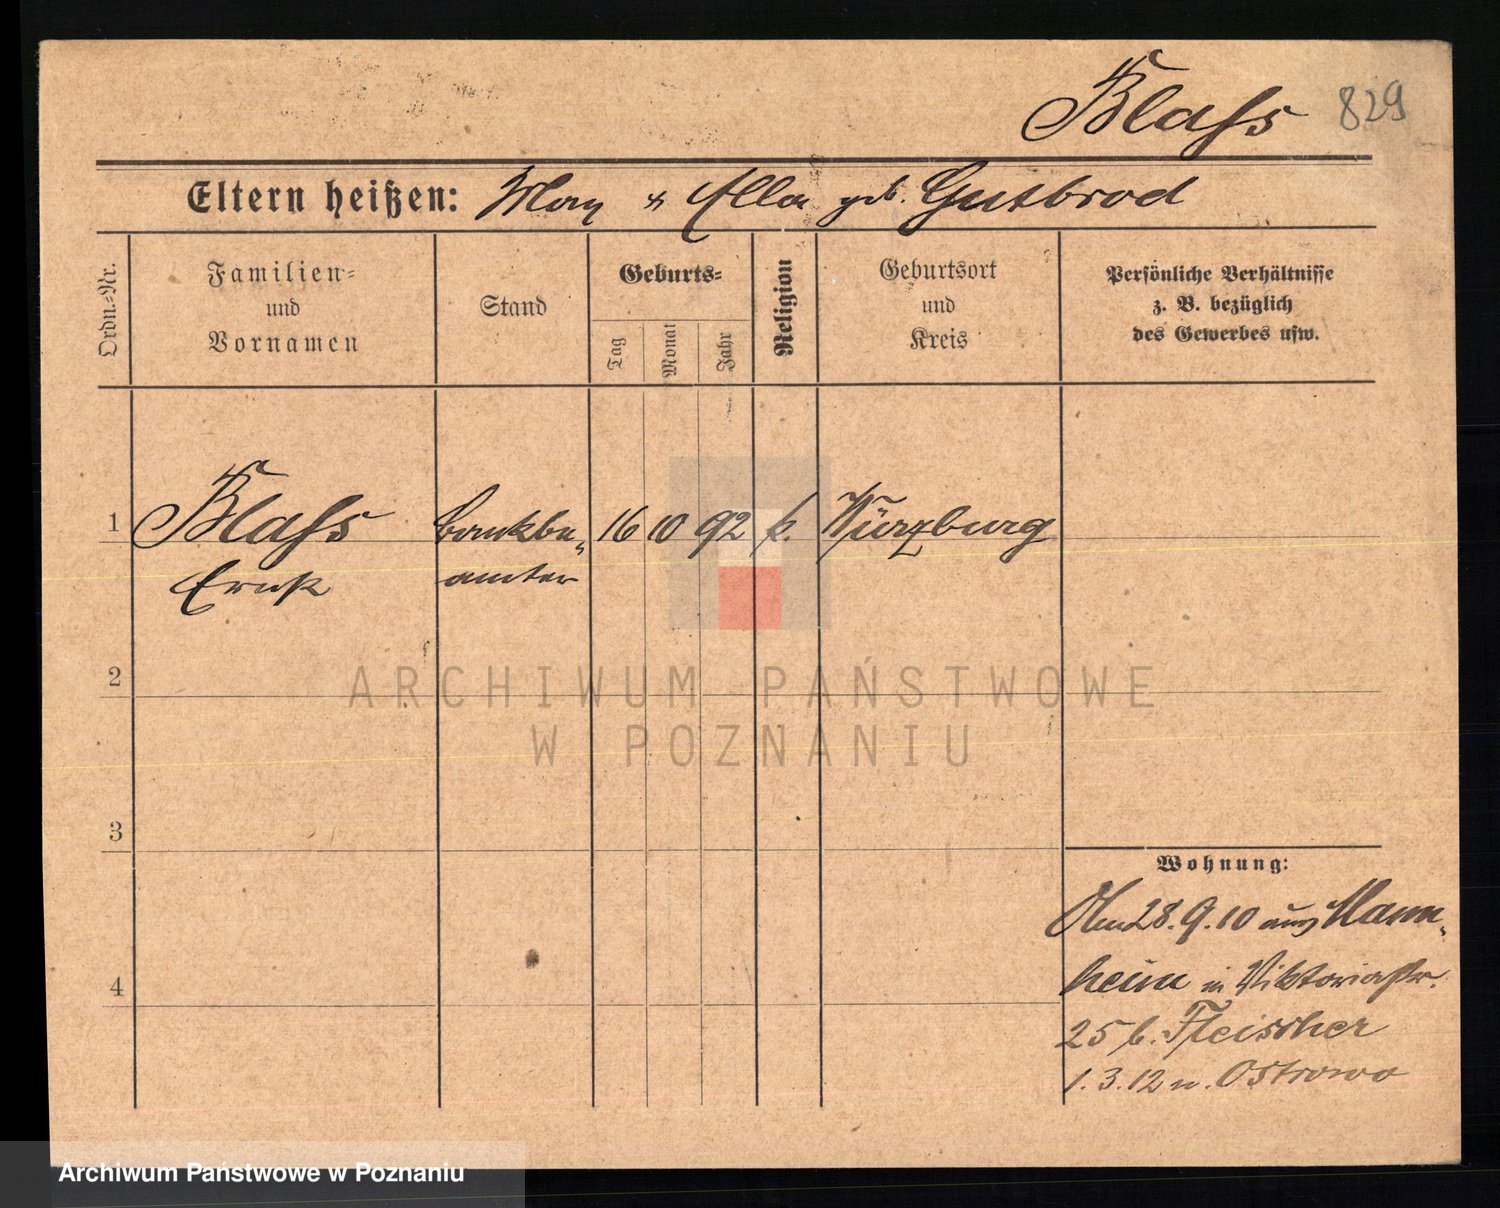 Blaß 829
Eltern heißen: Max u Ella geb. Gutbrod
Ordn.-Nr.
Familien-
und
Vornamen
Stand
Geburts-
Tag
Monat
Jahr
Religion
Geburtsort
und
Kreis
Persönliche Verhältnisse
z. B. bezüglich
des Gewerbes usw.
1 Blaß bankbe- 16 10 92 k. Würzburg
Ernst amter
2
3
4
Wohnung:
Am 28.9.10 aus Mann-
heim in Viktoriastr.
25 b. Fleischer
1.3.12 n. Ostrowo
ARCHIWUM PAŃSTWOWE
W POZNANIU
Archiwum Państwowe w Poznaniu